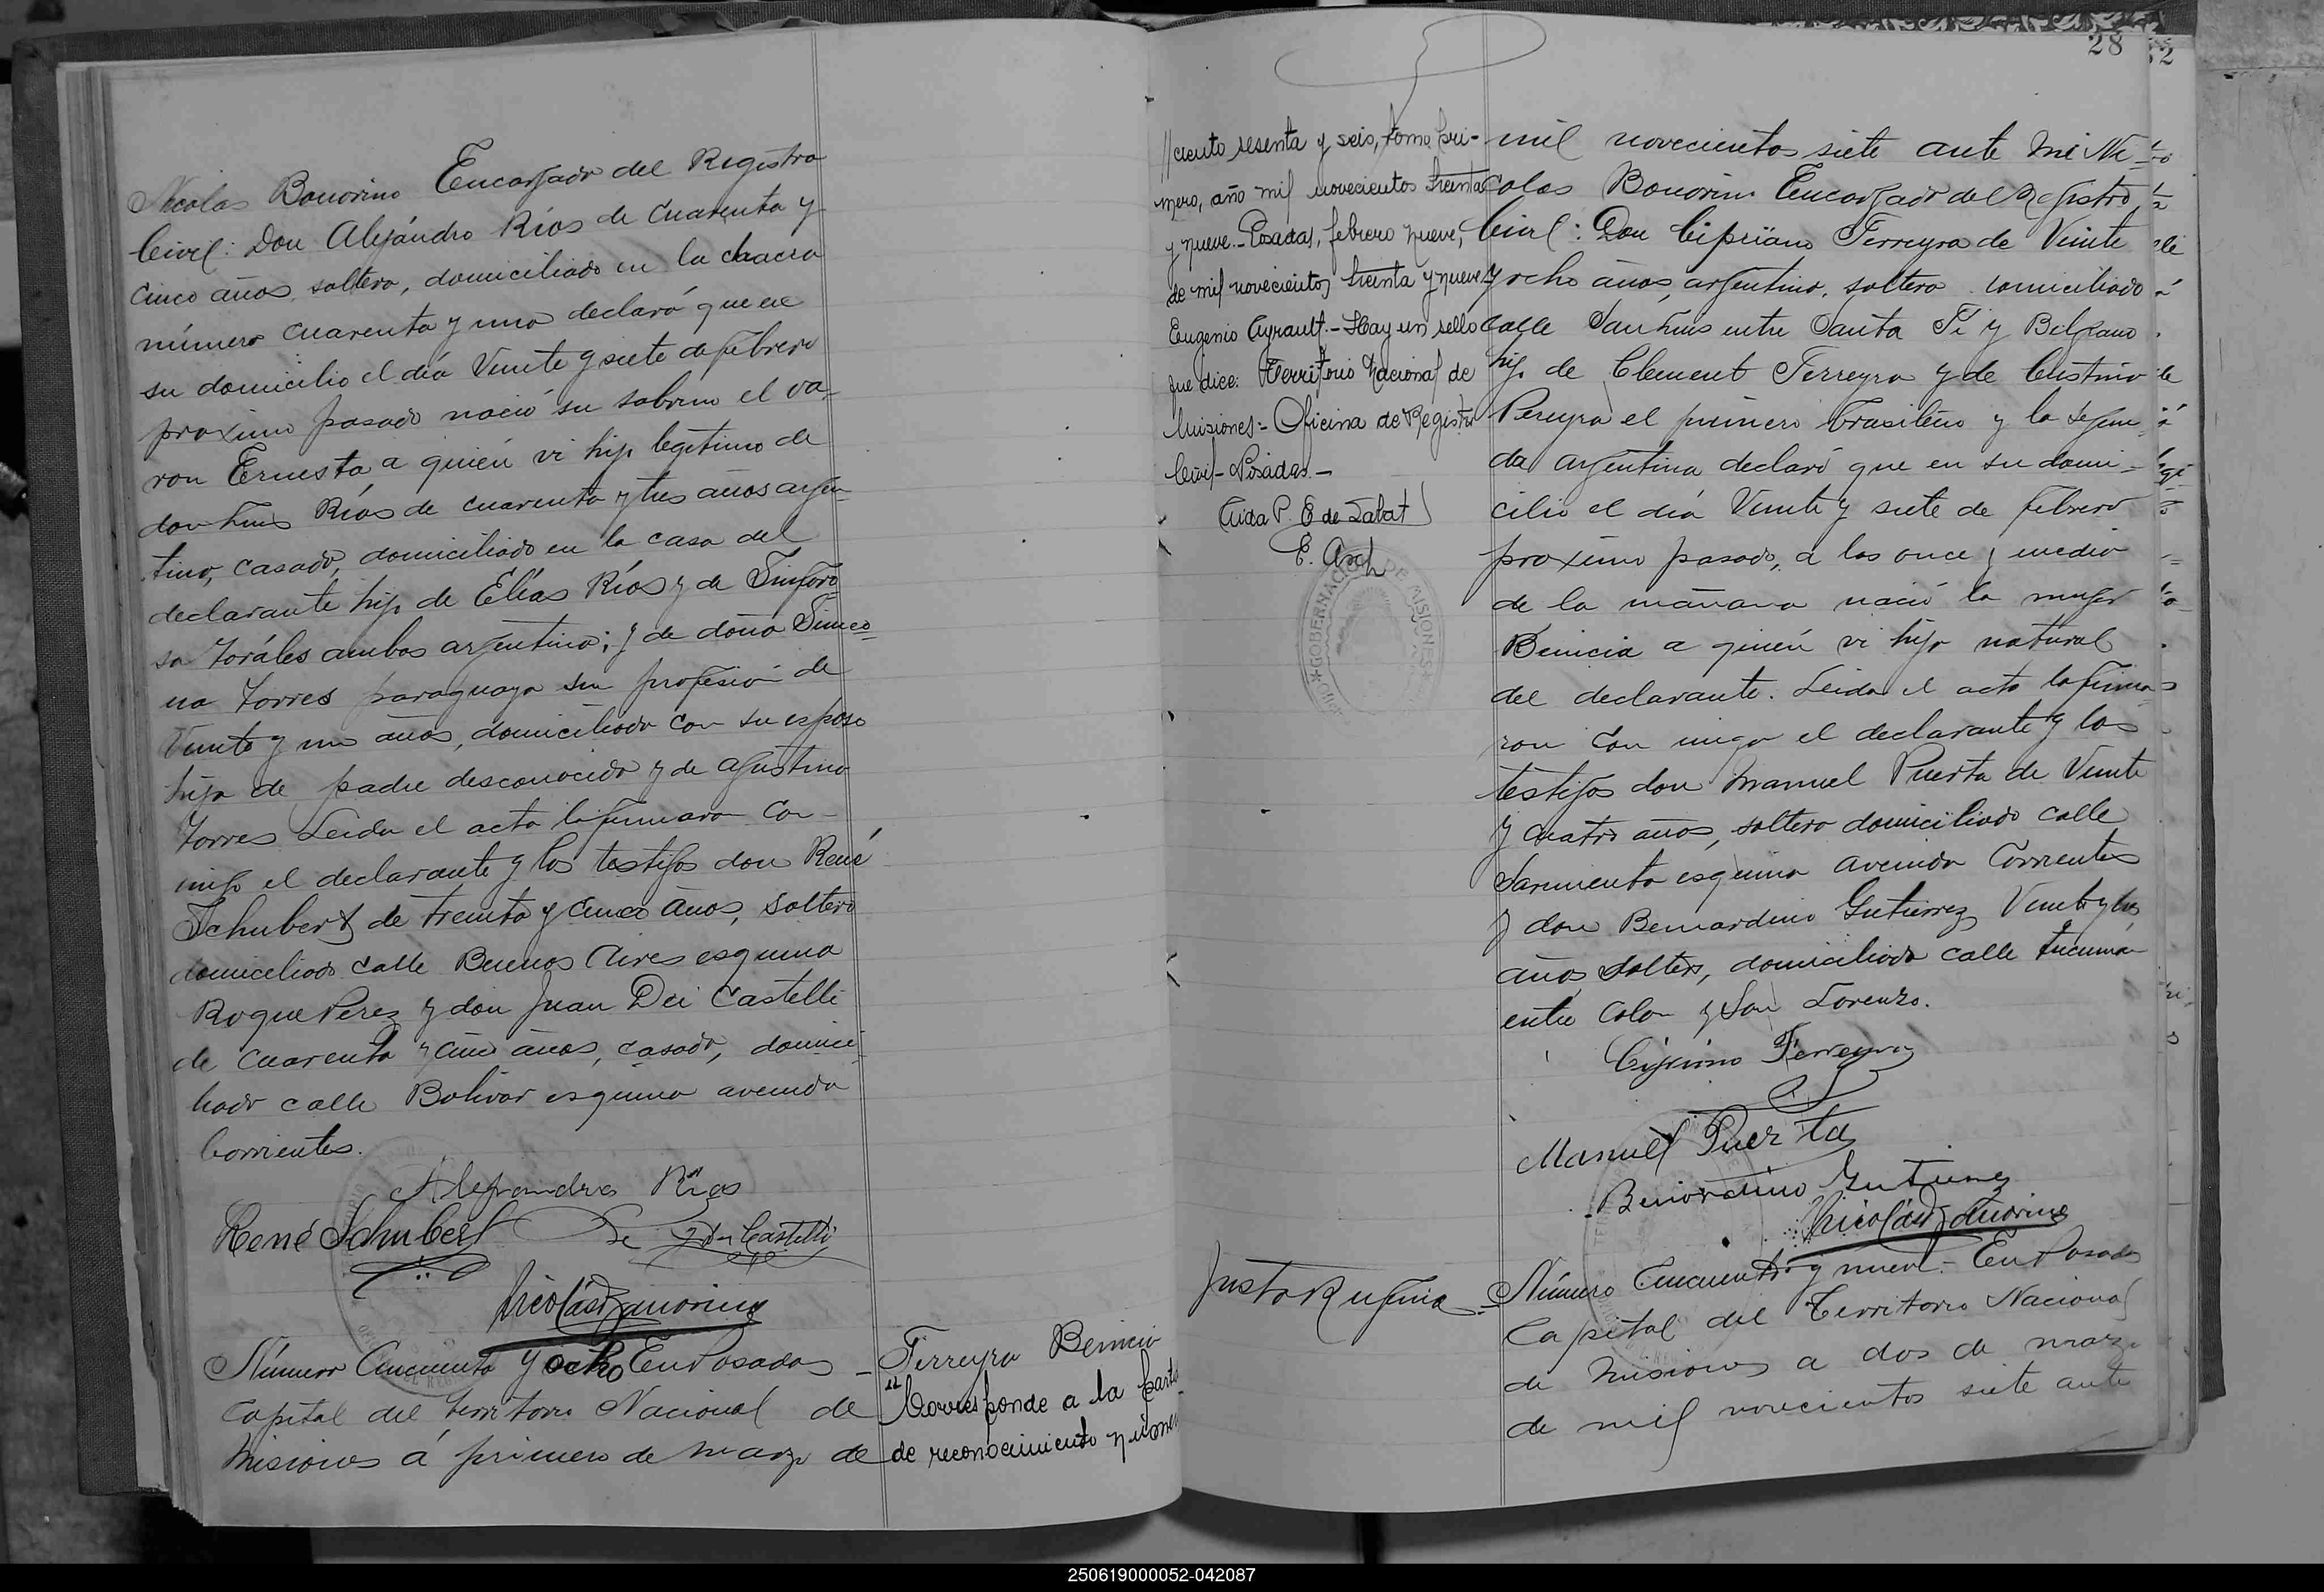 Nicolas Bonorino Encargado del Registro
Civil: Don Alejándro Ríos de cuarenta y
cinco años, soltero, domiciliado en la chacra
número cuarenta y uno declaró que en
su domicilio el día Veinte y siete de febrero
proximo pasado nació su sobrino el va-
ron Ernesto a quién vi hijo legítimo de
don Luis Ríos de cuarenta y tres años argen-
tino, casado, domiciliado en la casa del
declarante hijo de Elías Ríos y de Sinforo
sa Toráles ambos argentinos; y de doña Simeo=
na Torres paraguaya sin profesión de
Veinte y un años, domiciliada con su esposo
hija de padre desconocido y de Agustina
Torres Leida el acta la firmaron con-
migo el declarante y los testigos don René
Schubert de treinta y cinco años, soltero
domiciliado calle Buenos Aires esquina
Roque Perez y don Juan Dei Castelli
de cuarenta y cinco años, casado, domici-
liado calle Bolívar esquina avenida
Corrientes.
Alejandro Ríos
René Schubert Dei Castelli
Nicolás Bonorino
Número Cincuenta y ocho En Posadas
Capital del territorio Nacional de
Misiones á primero de marzo de
Ferreyra Benicia
Corresponde a la Carta
de reconocimiento número
28
//ciento sesenta y seis, tomo pri-
mero, año mil novecientos treinta
y nueve.- Posadas, febrero nueve,
de mil novecientos treinta y nueve.
Eugenio Ayrault.- Hay un sello
que dice: Territorio Nacional de
Misiones:- Oficina de Registro
Civil- Posadas.-
Aida P. E de Labat
E. Arch
GOBERNACION DE MISIONES
mil novecientos siete ante mi Ni=
colas Bonorino Encargado del Registro
Civil: Don Cipriano Ferreyra de Veinte
y ocho años, argentino, soltero domiciliado
calle San Luis entre Santa Fé y Belgrano
hijo de Clement Ferreyra y de Cristina
Pereyra el primero brasileño y la segun-
da argentina declaró que en su domi-
cilio el día Veinte y siete de febrero
proximo pasado, a las once y media
de la mañana nació la mujer
Benicia a quién vi hija natural
del declarante. Leida el acta la firma-
ron con migo el declarante y los
testigos don Manuel Puerta de Veinte
y cuatro años, soltero domiciliado calle
Sarmiento esquina avenida Corrientes
y don Bernardino Gutierrez Veinte y tres
años soltero, domiciliado calle Tucumán
entre Colon y San Lorenzo.
Cipriano Ferreyra
Manuel Puerta
Bernardino Gutierrez
Nicolás Bonorino
Justo Rufina
Número Cincuenta y nueve.- En Posadas
Capital del Territorio Nacional
de Misiones a dos de marzo
de mil novecientos siete ante
250619000052-042087